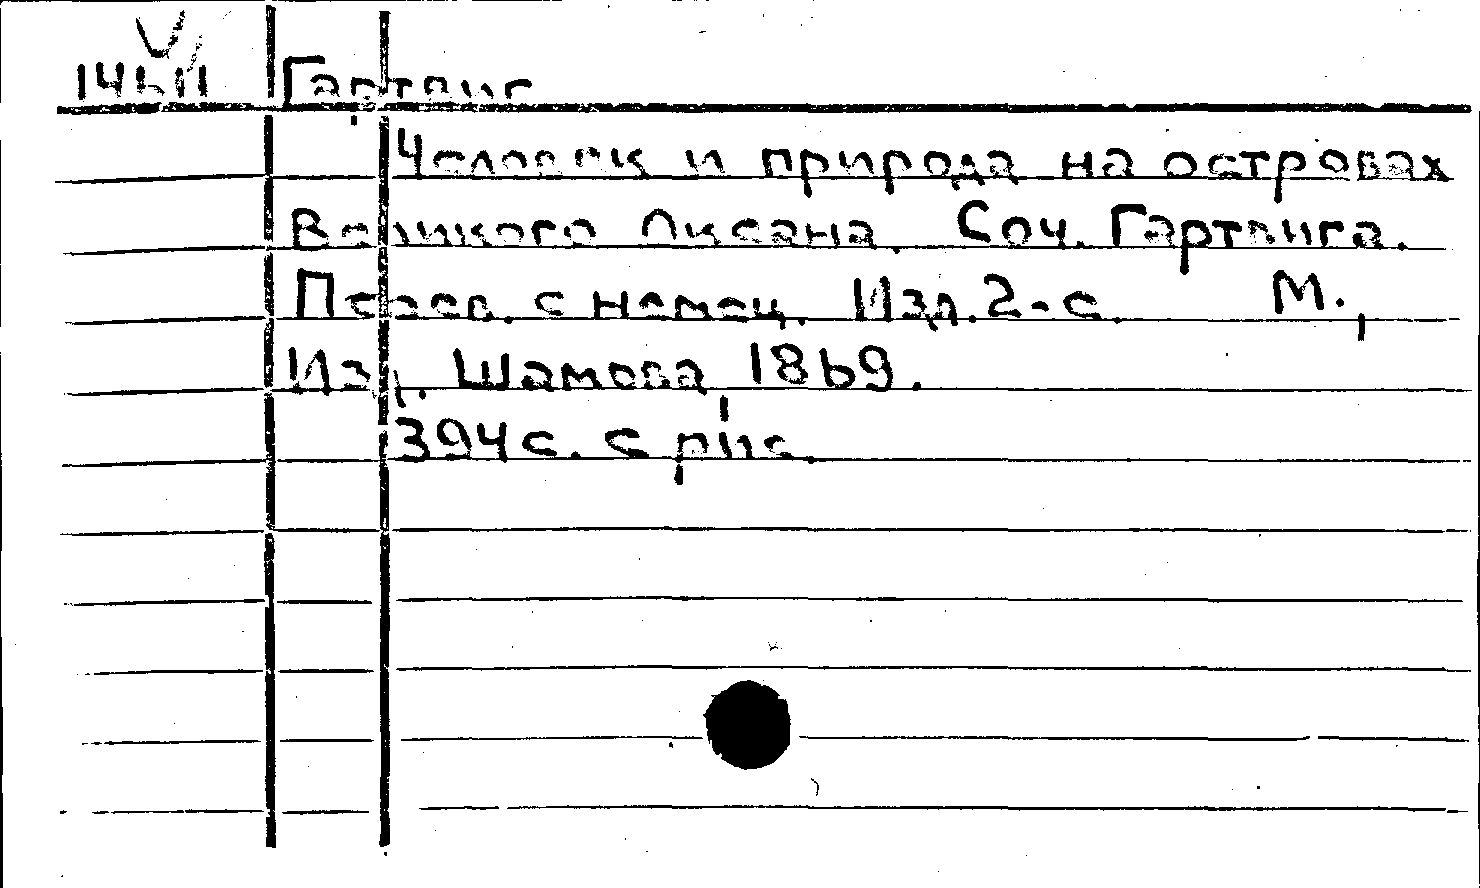 14611 Гартвиг
Человек и природа на островах
Великого Океана. Соч. Гартвига.
Перев. с немец. Изд. 2-е. М.,
Изд. Шамова, 1869.
394 с. с рис.